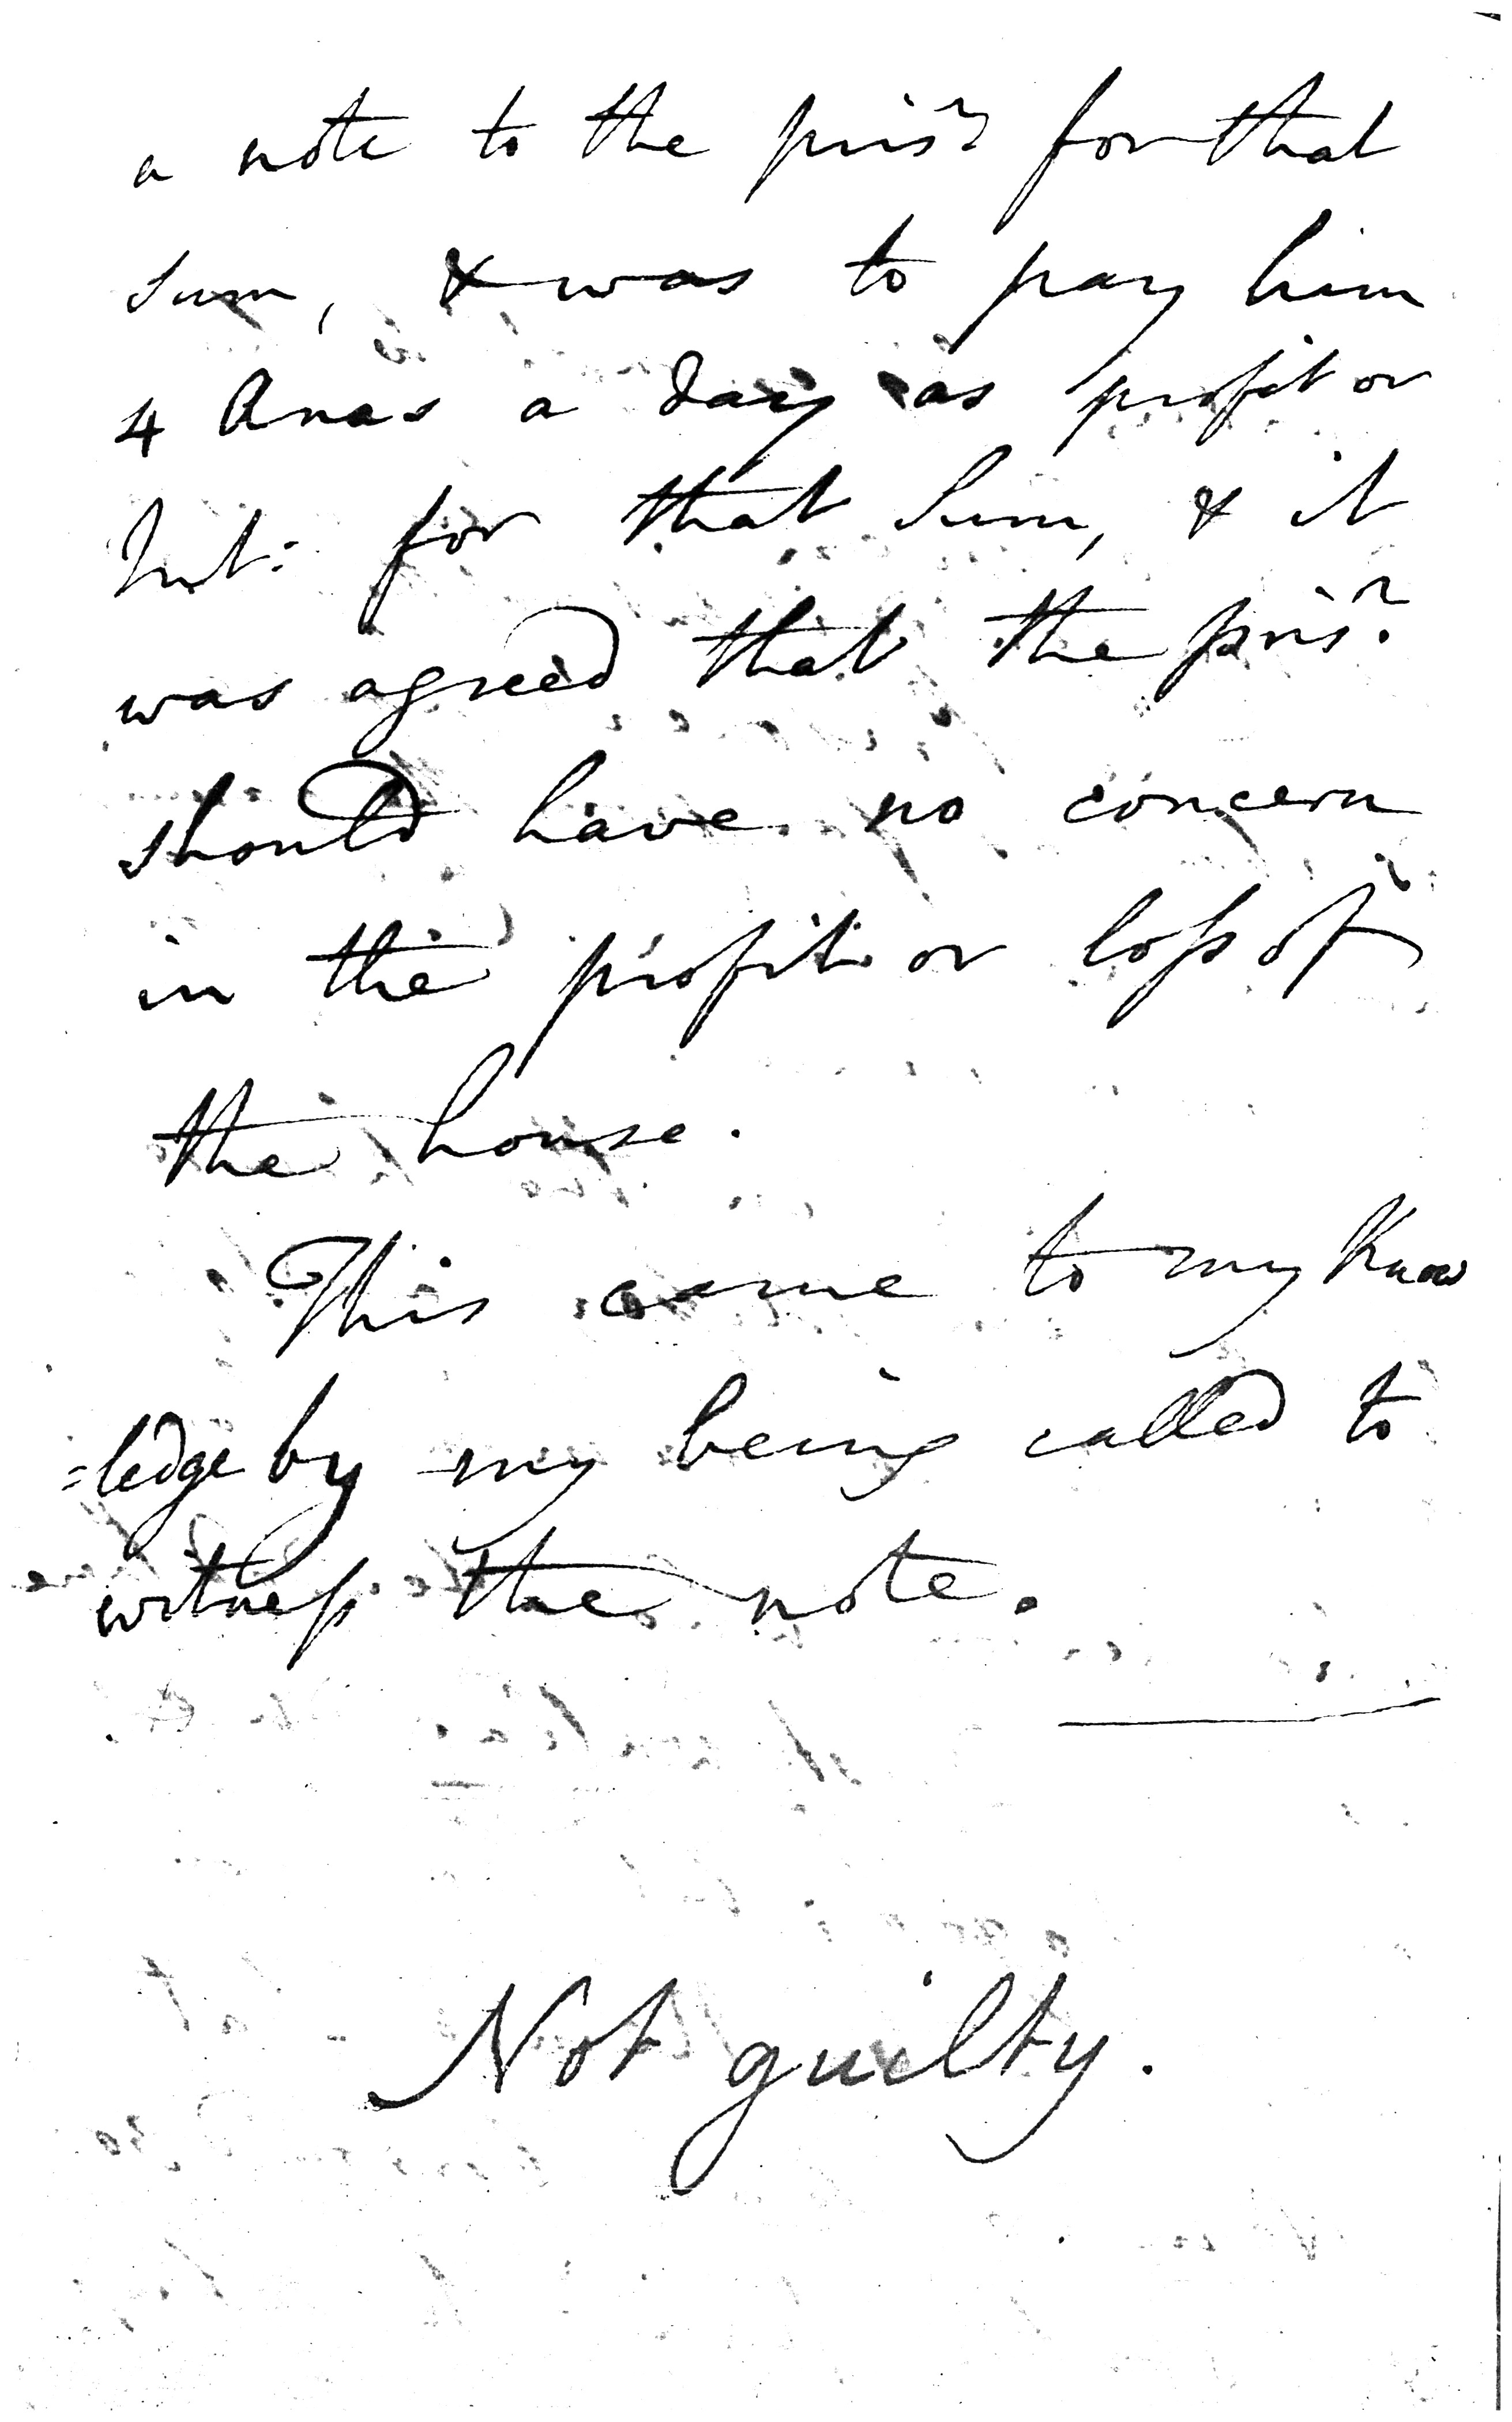 a note to the pris.r for that
sum, & was to pay him
4 Anas a day as profit or
Int: for that sum, & it
was agreed that the pris.r
should have no concern
in the profit or loss of
the house.
This came to my know
=ledge by my being called to
witness the note.
Not guilty.